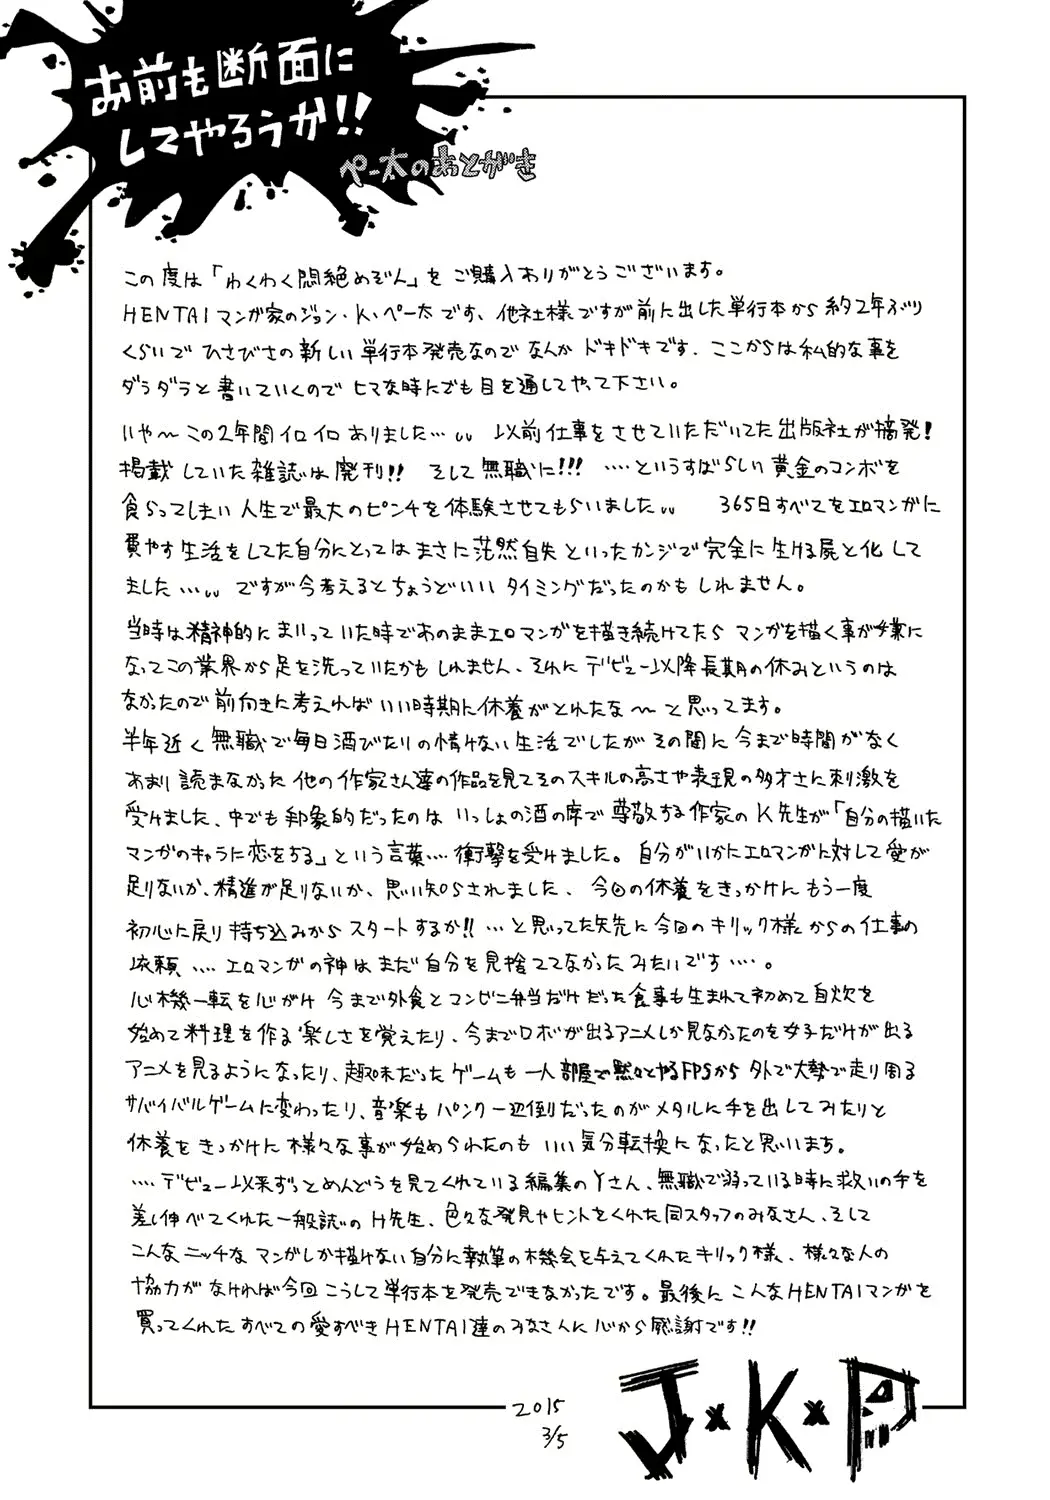 お前も断面に
してやろうか!!
ペー太のあとがき
この度は「わくわく悶絶めぞん」をご購入ありがとうございます。
HENTAIマンガ家のジョン・K・ペー太です、他社様ですが前に出した単行本から約2年ぶり
くらいでひさびさの新しい単行本発売なのでなんかドキドキです. ここからは私的な事を
ダラダラと書いていくのでヒマな時にでも目を通してやって下さい。
いや〜この2年間イロイロありました…。。 以前仕事をさせていただいてた出版社が摘発!
掲載していた雑誌は廃刊!! そして無職に!!! ‥‥というすばらしい黄金のコンボを
食らってしまい人生で最大のピンチを体験させてもらいました。。 365日すべてをエロマンガに
費やす生活をしてた自分にとってはまさに茫然自失といったカンジで完全に生ける屍と化して
ました…。。 ですが今考えるとちょうどいいタイミングだったのかもしれません。
当時は精神的にまいっていた時であのままエロマンガを描き続けてたらマンガを描く事が嫌に
なってこの業界から足を洗っていたかもしれません、それにデビュー以降長期の休みというのは
なかったので前向きに考えればいい時期に休養がとれたな〜と思ってます。
半年近く無職で毎日酒びたりの情けない生活でしたがその間に今まで時間がなく
あまり読まなかった他の作家さん達の作品を見てそのスキルの高さや表現の多才さに刺激を
受けました、中でも印象的だったのはいっしょの酒の席で尊敬する作家のK先生が「自分の描いた
マンガのキャラに恋をする」という言葉‥‥衝撃を受けました。自分がいかにエロマンガに対して愛が
足りないか、精進が足りないか、思い知らされました、今回の休養をきっかけにもう一度
初心に戻り持ち込みからスタートするか!! …と思ってた矢先に今回のキリック様からの仕事の
依頼‥‥エロマンガの神はまだ自分を見捨ててなかったみたいです‥‥。
心機一転を心がけ今まで外食とコンビニ弁当だけだった食事も生まれて初めて自炊を
始めて料理を作る楽しさを覚えたり、今までロボが出るアニメしか見なかったのを女子だけが出る
アニメを見るようになったり、趣味だったゲームも一人部屋で黙々とやるFPSから外で大勢で走り周る
サバイバルゲームに変わったり、音楽もパンク一辺倒だったのがメタルに手を出してみたりと
休養をきっかけに様々な事が始められたのもいい気分転換になったと思います。
‥‥デビュー以来ずっとめんどうを見てくれている編集のYさん、無職で弱っている時に救いの手を
差し伸べてくれた一般誌のH先生、色々な発見やヒントをくれた同スタッフのみなさん、そして
こんなニッチなマンガしか描けない自分に執筆の機会を与えてくれたキリック様、様々な人の
協力がなければ今回こうして単行本を発売できなかったです。最後にこんなHENTAIマンガを
買ってくれたすべての愛すべきHENTAI達のみなさんに心から感謝です!!
2015
3/5
J×K×P